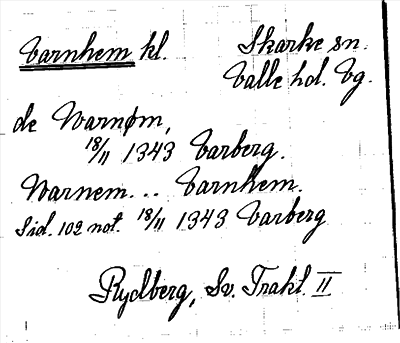 Varnhem kl. Skarke sn.
Valle hd. Vg.
de Warnøm,
18/11 1343 Varberg.
Warnem... Varnhem.
Sid. 102 not. 18/11 1343 Varberg
Rydberg, Sv. Trakt. II